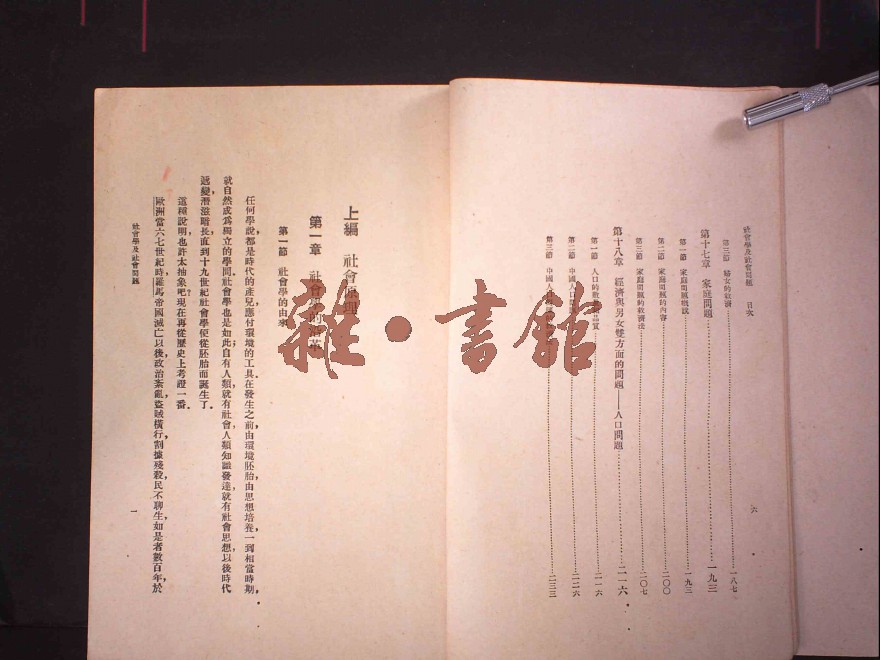 社會學及社會問題 目次
六
第三節 婦女的救濟 一八七
第十七章 家庭問題 一九三
第一節 家庭問題概說 一九三
第二節 家庭問題的內容 二〇〇
第三節 家庭問題的救濟法 二〇七
第十八章 經濟與男女雙方面的問題——人口問題 二一六
第一節 人口的數 品質 二一六
第二節 中國人口問題 二二六
第三節 中國人口 二三三
雜·書館
上編 社會原理
第一章 社會學的沿革
第一節 社會學的由來
任何學說都是時代的產兒應付環境的工具在發生之前,由環境胚胎由思想培養,一到相當時期,
就自然成爲獨立的學問社會學也是如此自有人類,就有社會,人類知識發達,就有社會思想以後時代
遞變潛滋暗長,直到十九世紀社會學便從胚胎而誕生了.
這種說明也許太抽象吧?現在再從歷史上考證一番.
歐洲當六七世紀時,羅馬帝國滅亡以後,政治紊亂,盜賊橫行,割據殘殺,民不聊生,如是者數百年,於
社會學及社會問題
一